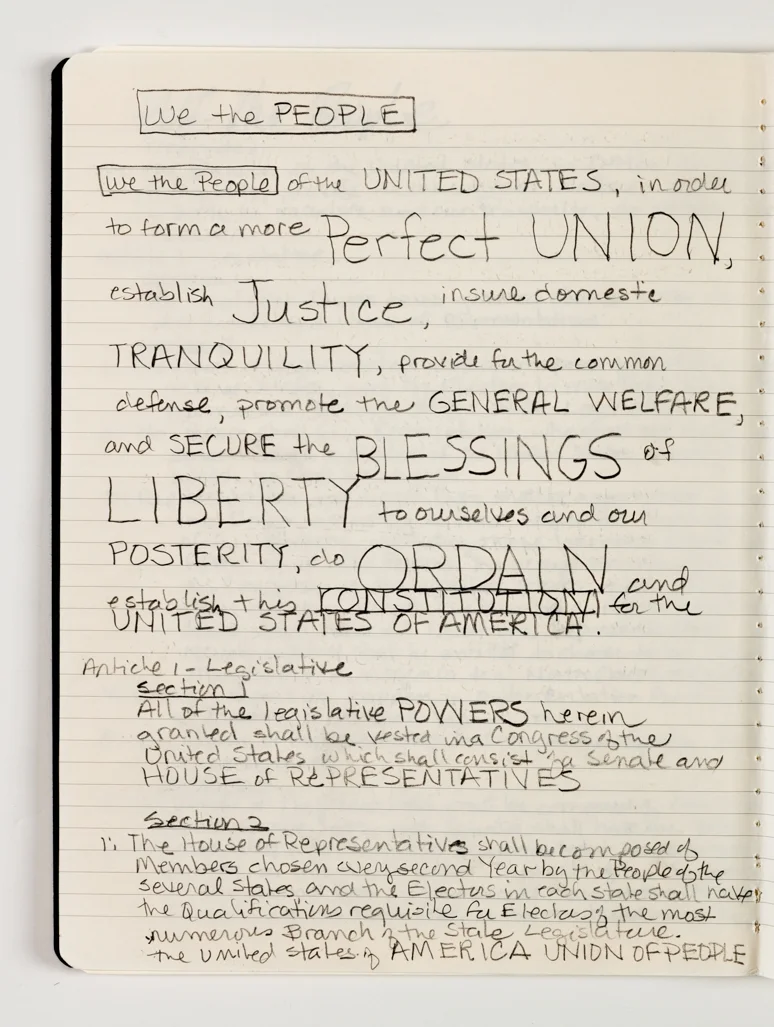 We the PEOPLE
We the People of the UNITED STATES, in order
to form a more Perfect UNION,
establish Justice, insure domestc
TRANQUILITY, provide for the common
defense, promote the GENERAL WELFARE,
and SECURE the BLESSINGS of
LIBERTY to ourselves and our
POSTERITY, do ORDAIN and
establish this CONSTITUTION for the
UNITED STATES OF AMERICA.
Article 1 - Legislative
Section 1
All of the legislative POWERS herein
granted shall be vested in a Congress of the
United States which shall consist of a Senate and
HOUSE of REPRESENTATIVES
Section 2
1: The House of Representatives shall be composed of
Members chosen every second Year by the People of the
several States and the Electors in each state shall have
the Qualifications requisite for Electors of the most
numerous Branch of the State Legislature.
the United States of AMERICA UNION OF PEOPLE